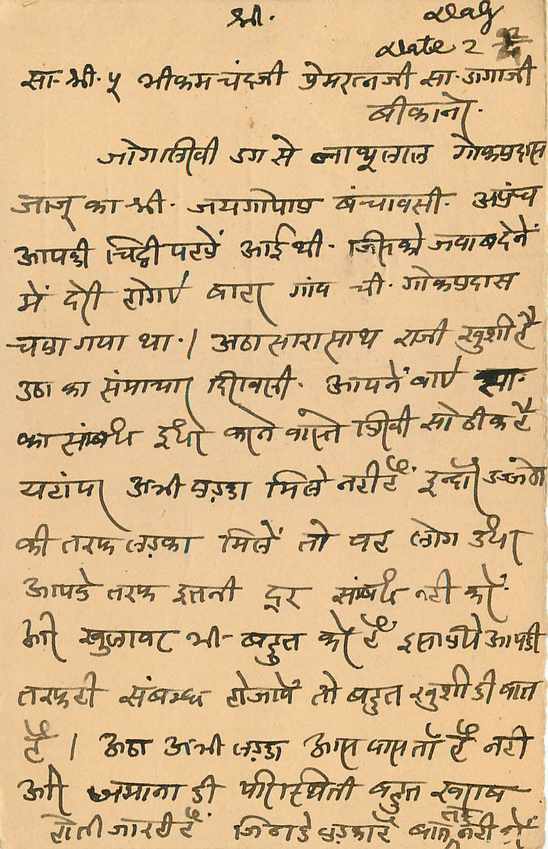 श्री.
Dag
Date 2
सा-श्री-५ भीकमचंदजी प्रेमरत्नजी सा-डागाजी
बीकानेर.
जोगलिखी डग से नाथूलाल गोकलदास
जाजू का श्री. जयगोपाल बंचावसी. अप्रंच
आपकी चिट्ठी पहले आई थी. जिसको जवाब देनें
में देरी होगई गांव ची. गोकलदास
चला गया था. । अठा सारा साथ राजी खुशी है
उठा का संमाचार दिरावसी. आपनें बाई सा.
का संबंध इधर करने वास्ते लिखी सो ठीक है
यहांपर अभी लड़का मिले नहीं हैं इन्दौर उज्जेन
की तरफ लड़का मिलें तो वह लोग उधर
आपके तरफ इतनी दूर संबंध नहीं करें.
और भी बहुत करें हैं इसलिये आपकी
तरफ ही संबन्ध होजावें तो बहुत खुशी की बात
है । अठा अभी लड़का आस पास तो है नहीं
और जमाना की परिस्थिती बहुत खराब
होती जा रही है जिनके लड़का है बात नहीं